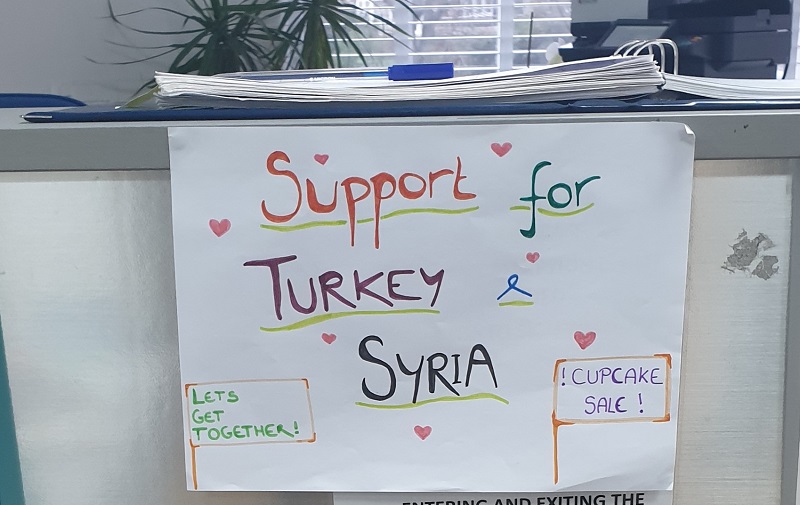 Support for
TURKEY &
SYRIA
LETS
GET
TOGETHER!
! CUPCAKE
SALE !
ENTERING AND EXITING THE